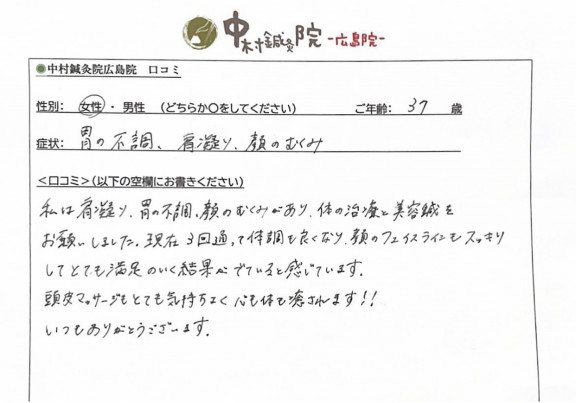 中村鍼灸院 -広島院-
中村鍼灸院広島院 口コミ
性別： 女性 ・ 男性 （どちらか〇をしてください） ご年齢： 37 歳
症状： 胃の不調、肩凝り、顔のむくみ
＜口コミ＞（以下の空欄にお書きください）
私は肩凝り、胃の不調、顔のむくみがあり、体の治療と美容鍼を
お願いしました。現在3回通って体調も良くなり、顔のフェイスラインもスッキリ
してとても満足のいく結果がでていると感じています。
頭皮マッサージもとても気持ちよく心も体も癒されます!!
いつもありがとうございます。